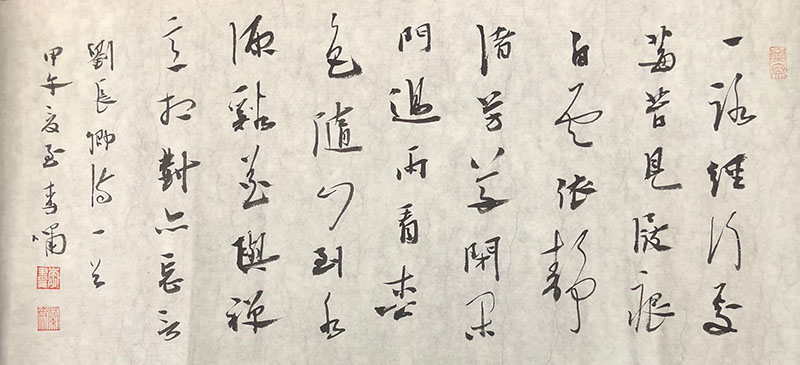 一路經行處
莓苔見屐痕
白雲依靜
渚芳草閉閑
門過雨看松
色隨山到水
源谿花與禪
意相對亦忘言
劉長卿詩一首
甲午夏至嘯